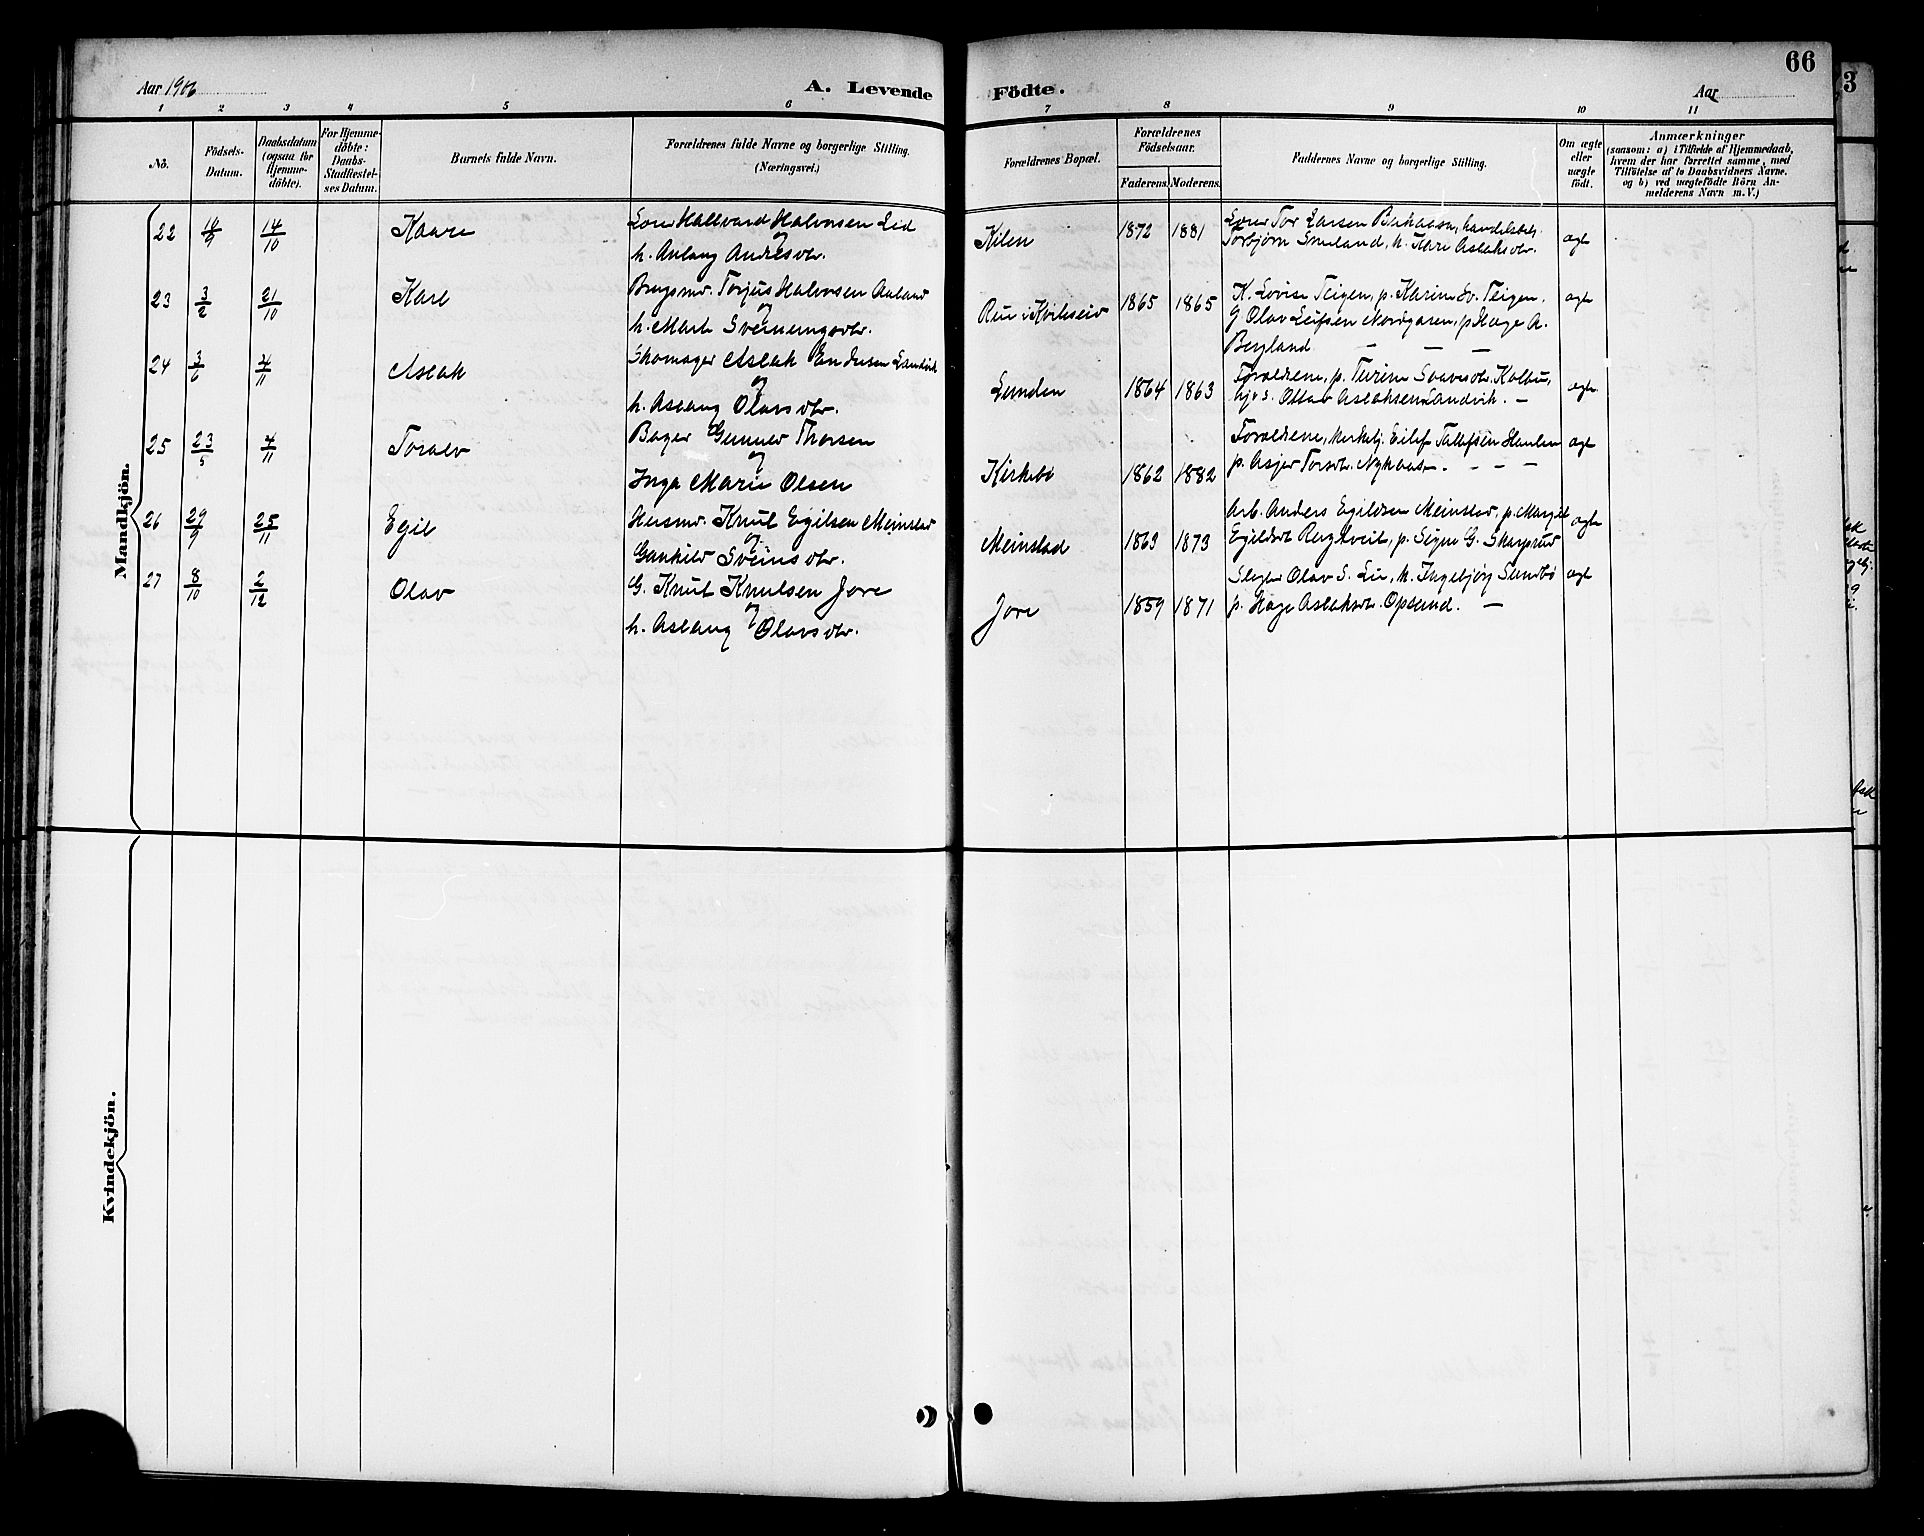 66
3
Aar 1906
A. Levende
Födte.
Aar
1 2 3 4 5 6 7 8 9 10 11
Nö.
Födsels-
Datum.
Daabsdatum
(ogsaa for
Hjemme-
döbte).
For Hjemme-
döbte:
Daabs-
Stadfæstel-
ses Datum.
Barnets fulde Navn.
Forældrenes fulde Navne og borgerlige Stilling.
(Næringsvei.)
Forældrenes Bopæl.
Forældrenes
Födselsaar.
Faderens. Moderens.
Faddernes Navne og borgerlige Stilling.
Om ægte
eller
uægte
født.
Anmærkninger
(saasom: a) i Tilfælde af Hjemmedaab,
hvem der har forrettet samme, med
Tilföielse af to Daabsvidners Navne.
og b) ved uægtefödte Börn An-
melderens Navn m. V.)
Mandkjön.
22 14/10 Kaare
Hallvard Halvorsen Lid
og
h. Aslaug Andresdtr.
Kilen 1872 1881
Lærer Tor Larsen handelsbetj.
Torbjörn h. Kari Aslaksdtr.
ægte
23 3/2 21/10 Karl
Brugsmd. Torjus Halvorsen Aaland
og
h. Marte Sveinungsdtr.
i Kviteseid 1865 1865
K. Lovise Teigen, p. Karine Sv. Teigen,
G. Olav Leifsen Nordgaren, p. Hæge A.
Bergland — — —
ægte
24 3/6 4/11 Aslak
Skomager Aslak Landvik
og
h. Aslaug Olavsdtr.
Lunden 1864 1863
Forældrene, p. Turine
Ottar Aslaksen Landvik. —
ægte
25 23/5 4/11 Toralv
Bager Gunnar Thorsen
og
Inga Marie Olsen
Kirkebö 1862 1882
Forældrene, Eilef Tallefsen
p. Asjer Torsdtr. Nykaas. — — —
ægte
26 29/9 25/11 Egil
Husmd. Knut Egilsen Meinstad
og
Gunhild Sveinsdtr.
Meinstad 1863 1873
Arb. Anders Egildsen Meinstad, p. Margit
Egildsdt. p. Signe G.
ægte
27 8/10 2/12 Olav
G. Knut Knutsen Jore
og
h. Aslaug Olavsdtr.
Jore 1859 1871
Olav S. Lie, k. Ingebjörg Sundbö
p. Hæge Aslaksdt. Opsund. —
ægte
Kvindekjön.